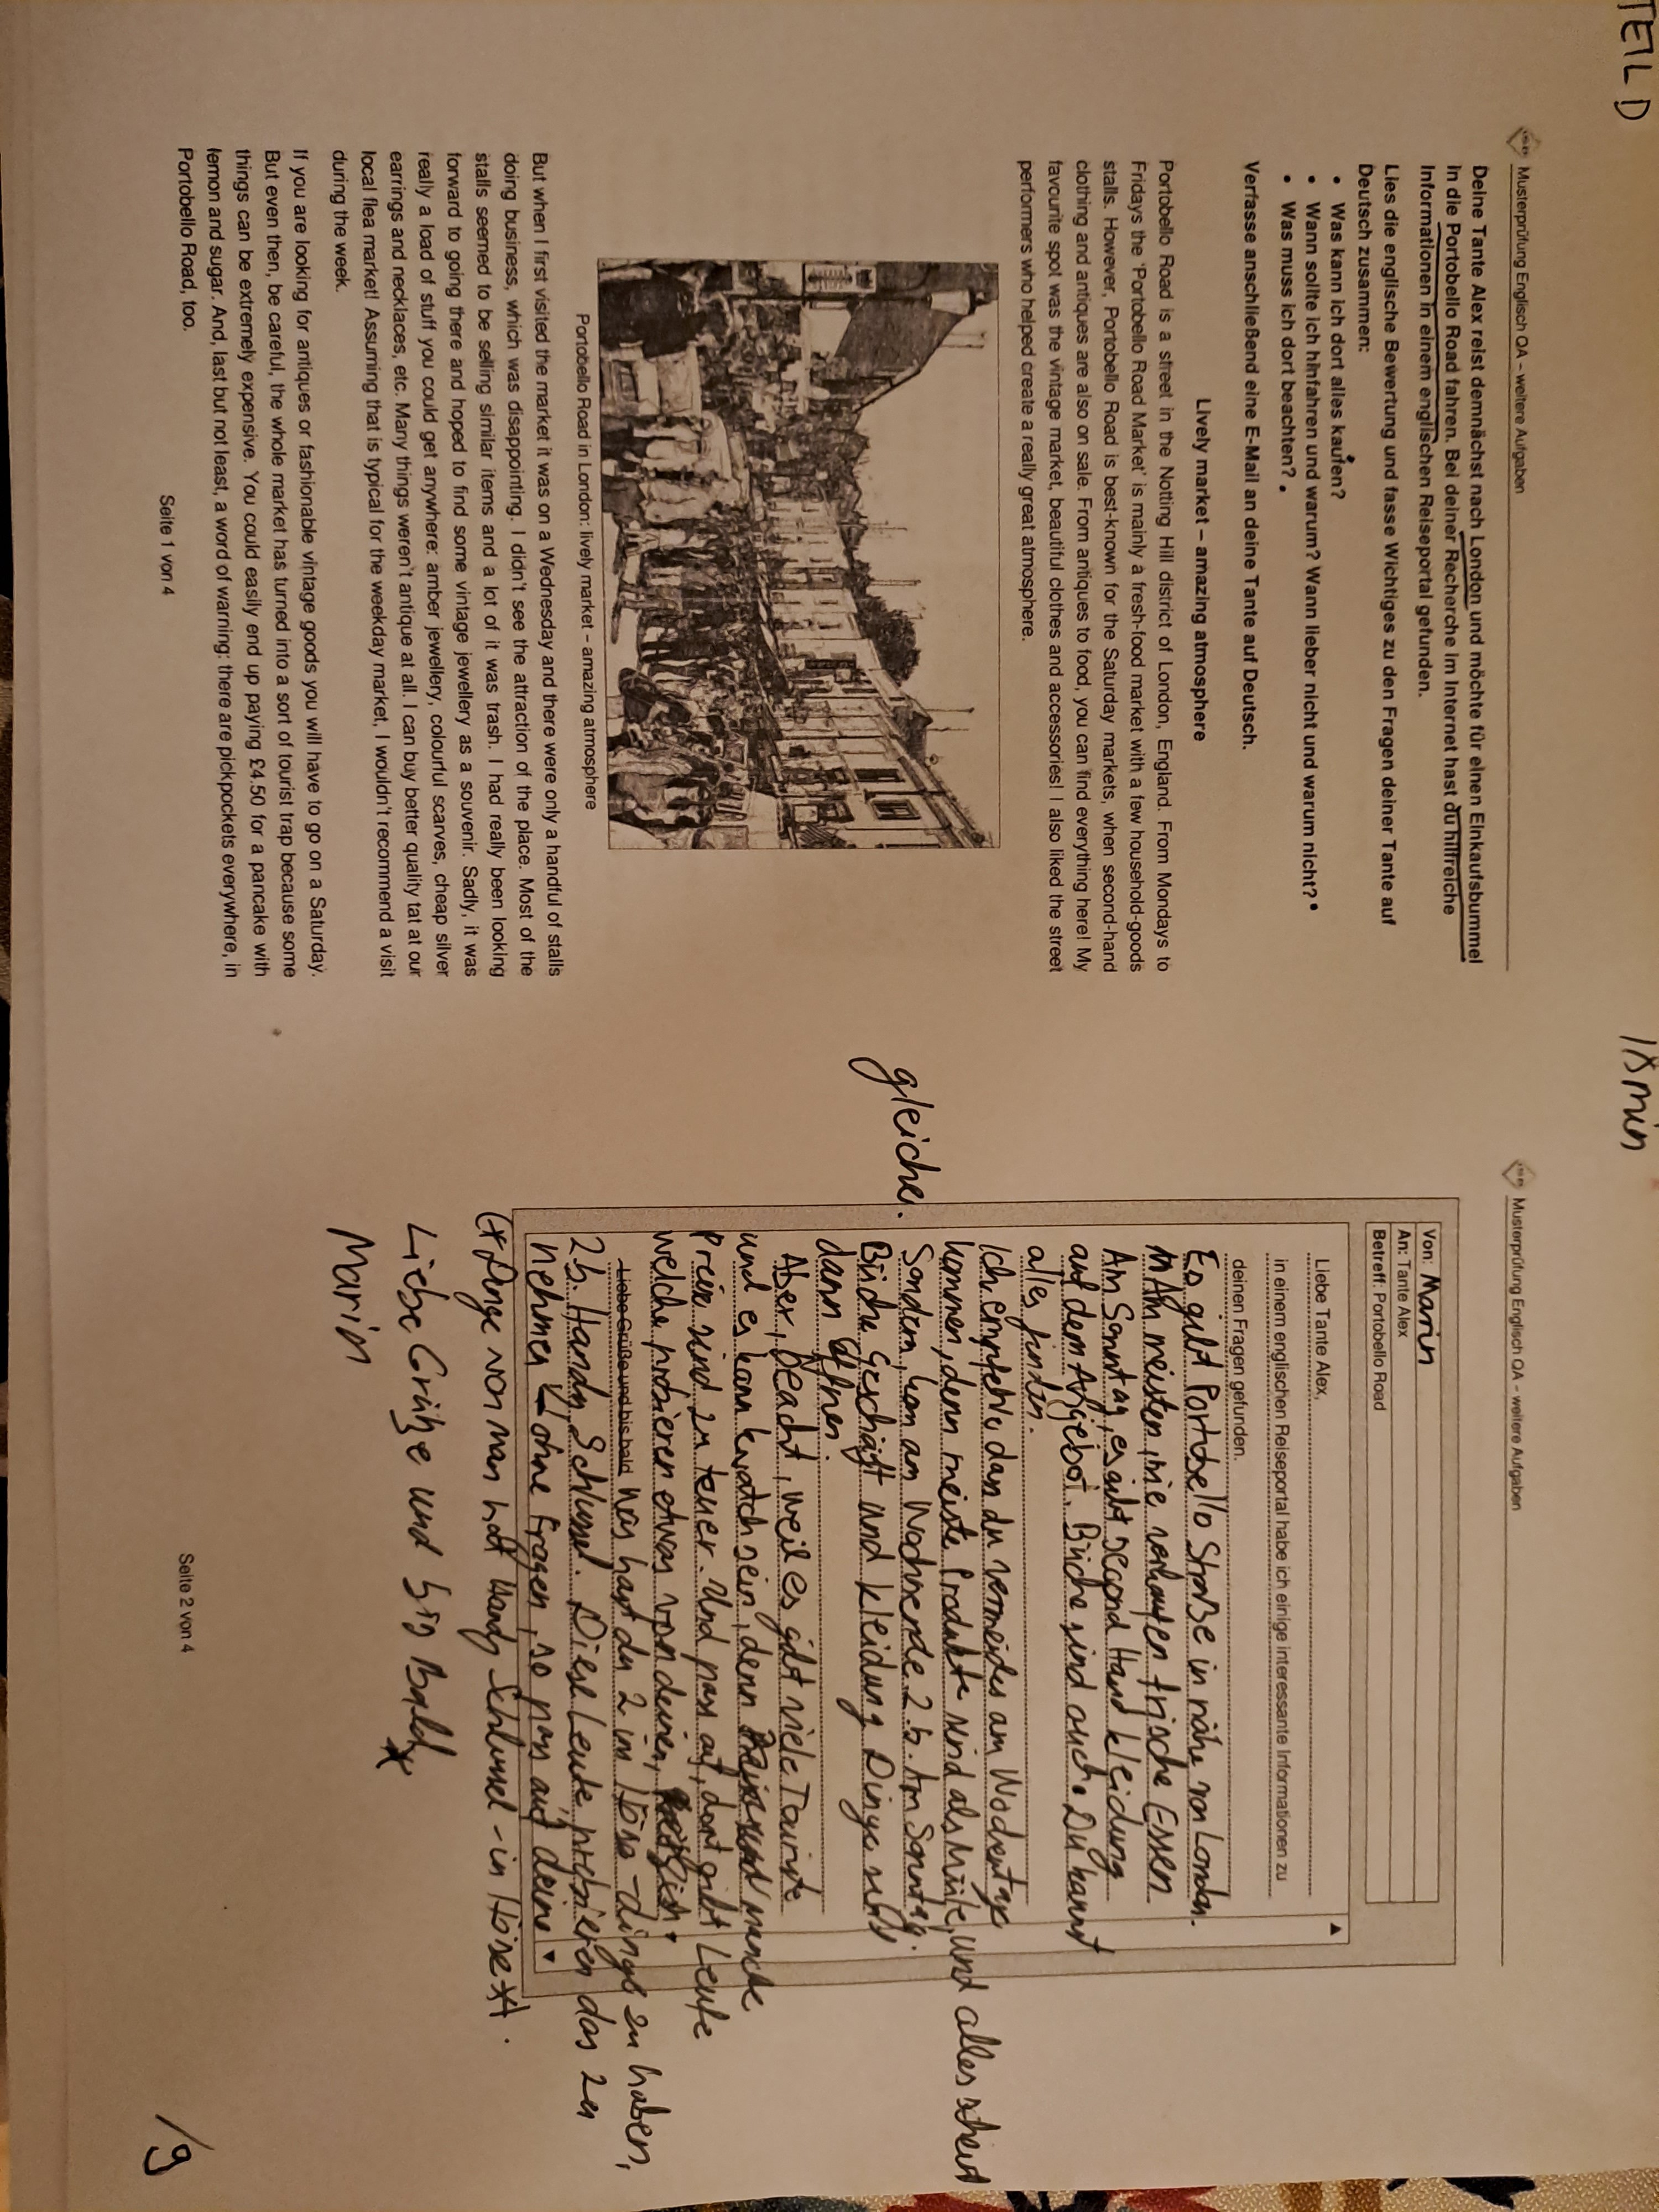 TEIL D
18 min
Musterprüfung Englisch QA – weitere Aufgaben
Deine Tante Alex reist demnächst nach London und möchte für einen Einkaufsbummel
in die Portobello Road fahren. Bei deiner Recherche im Internet hast du hilfreiche
Informationen in einem englischen Reiseportal gefunden.
Lies die englische Bewertung und fasse Wichtiges zu den Fragen deiner Tante auf
Deutsch zusammen:
• Was kann ich dort alles kaufen?
• Wann sollte ich hinfahren und warum? Wann lieber nicht und warum nicht?
• Was muss ich dort beachten?
Verfasse anschließend eine E-Mail an deine Tante auf Deutsch.
Lively market – amazing atmosphere
Portobello Road is a street in the Notting Hill district of London, England. From Mondays to
Fridays the 'Portobello Road Market' is mainly a fresh-food market with a few household-goods
stalls. However, Portobello Road is best-known for the Saturday markets, when second-hand
clothing and antiques are also on sale. From antiques to food, you can find everything here! My
favourite spot was the vintage market, beautiful clothes and accessories! I also liked the street
performers who helped create a really great atmosphere.
Portobello Road in London: lively market – amazing atmosphere
But when I first visited the market it was on a Wednesday and there were only a handful of stalls
doing business, which was disappointing. I didn't see the attraction of the place. Most of the
stalls seemed to be selling similar items and a lot of it was trash. I had really been looking
forward to going there and hoped to find some vintage jewellery as a souvenir. Sadly, it was
really a load of stuff you could get anywhere: amber jewellery, colourful scarves, cheap silver
earrings and necklaces, etc. Many things weren't antique at all. I can buy better quality tat at our
local flea market! Assuming that is typical for the weekday market, I wouldn't recommend a visit
during the week.
If you are looking for antiques or fashionable vintage goods you will have to go on a Saturday.
But even then, be careful, the whole market has turned into a sort of tourist trap because some
things can be extremely expensive. You could easily end up paying £4.50 for a pancake with
lemon and sugar. And, last but not least, a word of warning: there are pickpockets everywhere, in
Portobello Road, too.
Seite 1 von 4
Musterprüfung Englisch QA – weitere Aufgaben
Von: Marin
An: Tante Alex
Betreff: Portobello Road
Liebe Tante Alex,
in einem englischen Reiseportal habe ich einige interessante Informationen zu
deinen Fragen gefunden.
Es gibt Portobello Straße in nähe von London.
Am meisten, sie verkaufen frische Essen
Am Sonntag, es gibt second Hand kleidung
auf dem Angebot. Büche sind auch. Du kannt
alles finden.
Ich empfehle dan du vermeides am Wochentage
kommen, denn meiste Produkte sind als Müle, und alles scheit
gleiche.
Sondern, kom am Wochnende z.b. Am Sonntag.
Büche Geschäft und kleidung Dinge sind
dann öffnen.
Aber, beacht, weil es gibt viele Touriste
und es kann kwatch sein, denn manche
Preise sind zu teuer. Und pass auf, dort gibt Leute
welche probieren etwas von deinen
Liebe Grüße und bis bald was hast du z im Höse - dings zu haben,
z.b. Handy, Schlussel. Diese Leute probieren das zu
nehmen ohne fragen, so pass auf deine
(*Dinge von man hat Handy Schlussel - in Höse*).
Liebe Grüße und bis Bald
Marin
Seite 2 von 4
/9